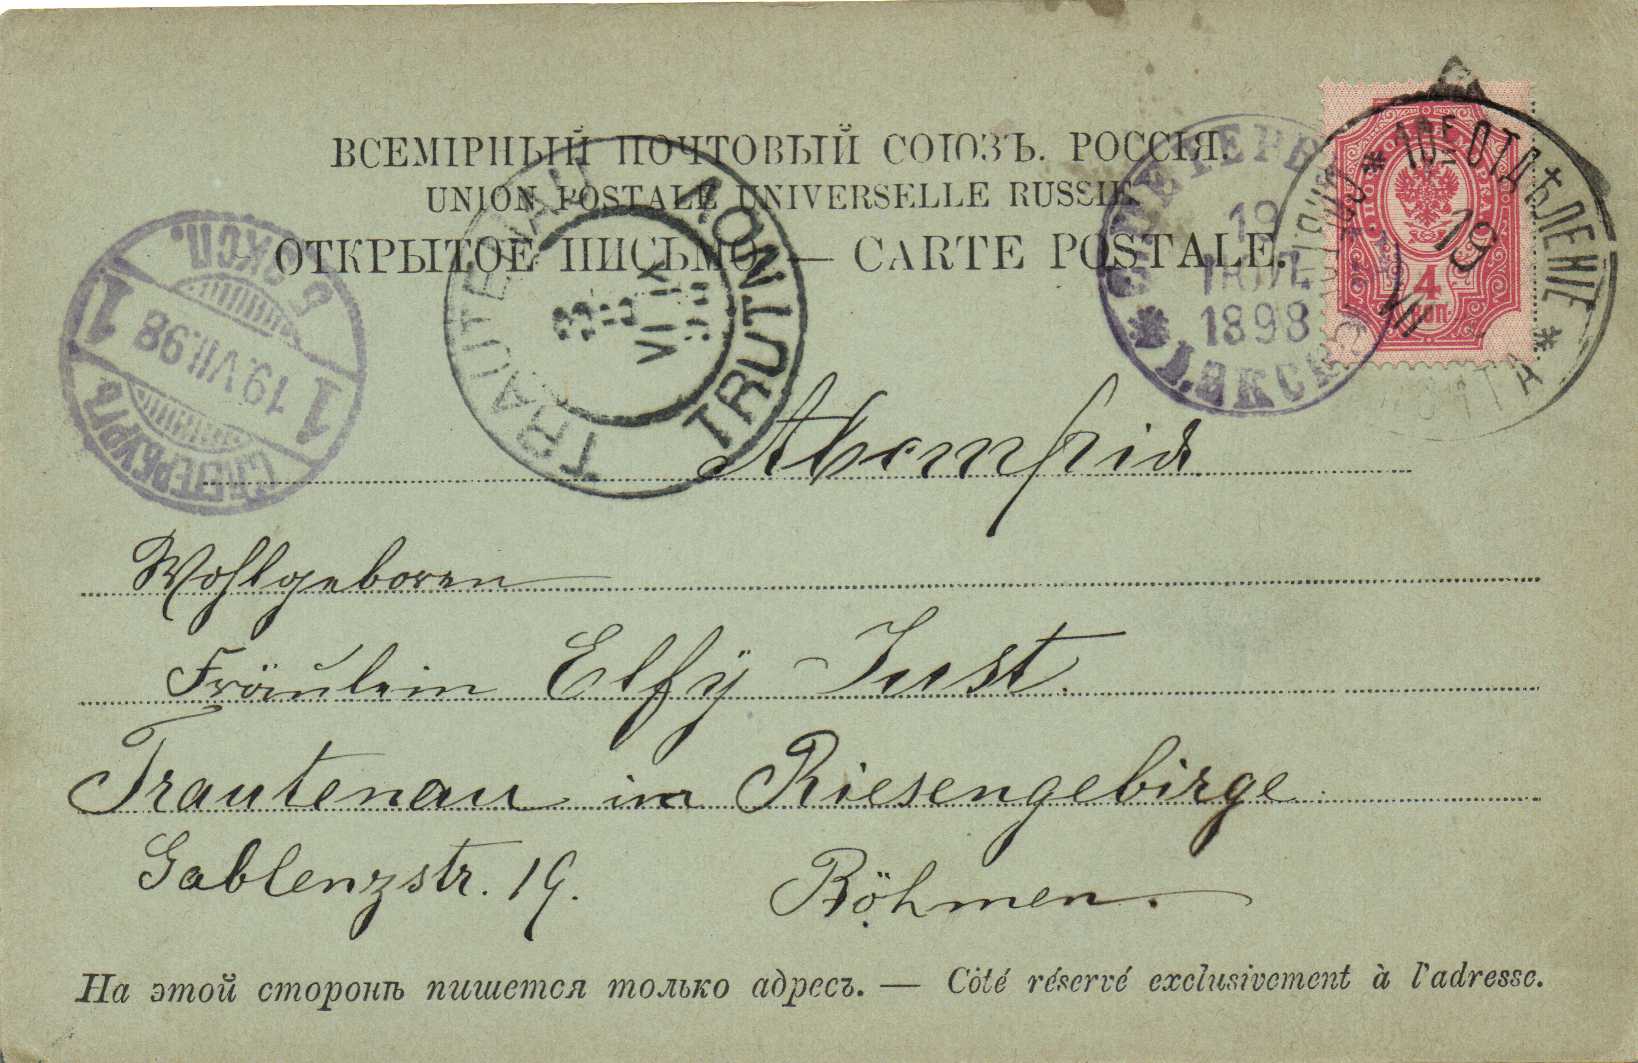 ВСЕМІРНЫЙ ПОЧТОВЫЙ СОЮЗЪ. РОССІЯ.
UNION POSTALE UNIVERSELLE RUSSIE
ОТКРЫТОЕ ПИСЬМО — CARTE POSTALE.
10Е ОТДѢЛЕНІЕ
19
ПОЧТА
4
КОП.
С.ПЕТЕРБ
19
ІЮЛ.
1898
1. ЭКСП.
TRAUTENAU
TRUTNOV
С.ПЕТЕРБУРГЪ
19.VII.98
5 ЭКСП.
1
1
Wohlgeboren
Fräulein Elfÿ Just.
Trautenau im Riesengebirge
Gablenzstr. 19.
Böhmen.
На этой сторонѣ пишется только адресъ. — Côté réservé exclusivement à l'adresse.